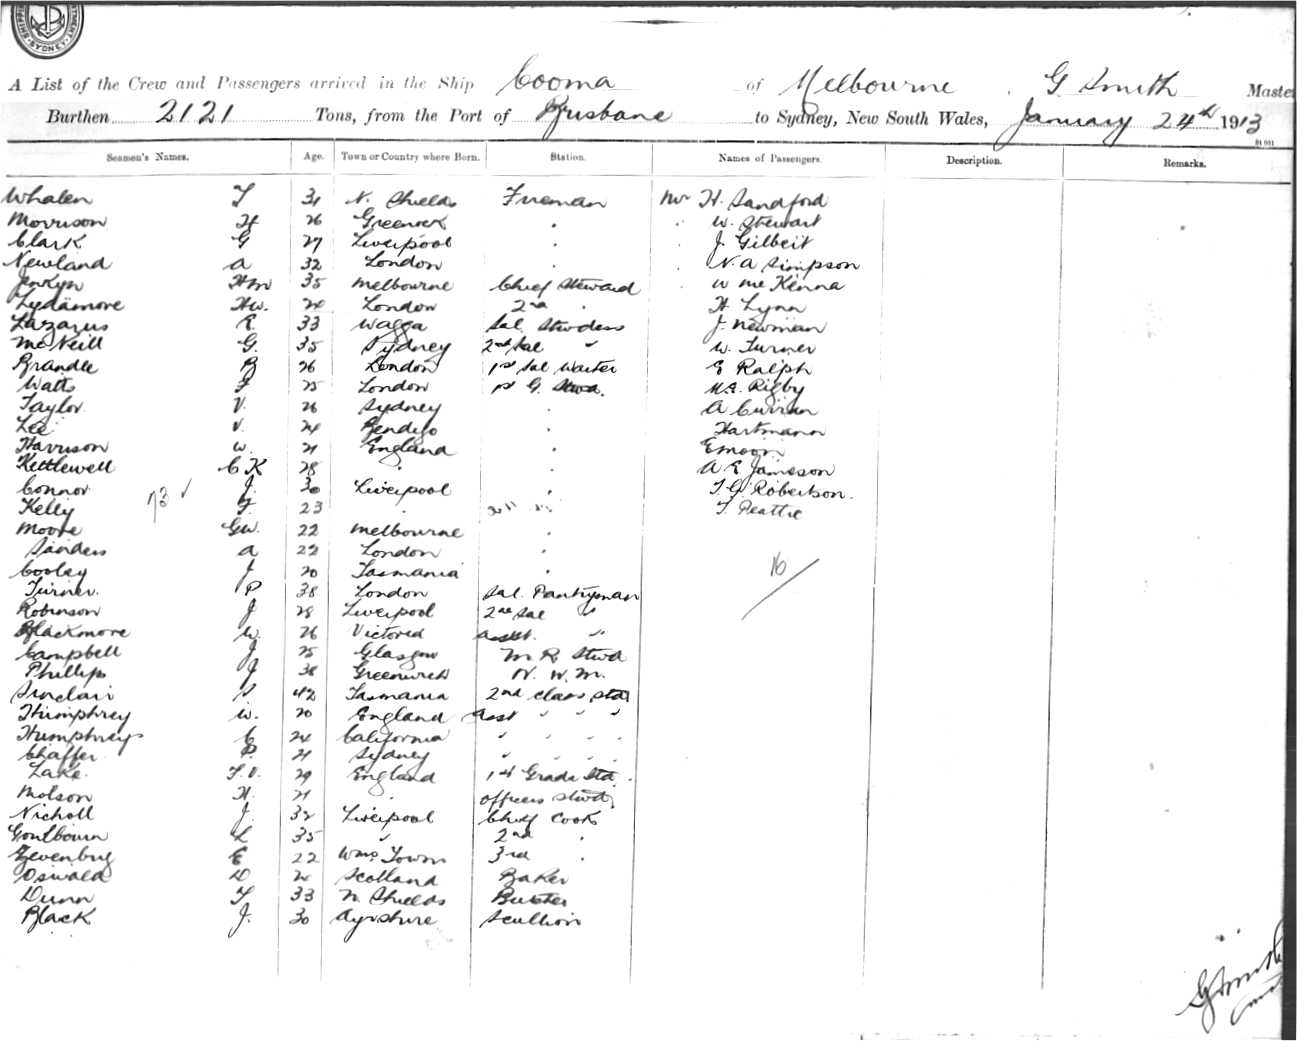 SYDNEY
A List of the Crew and Passengers arrived in the Ship Cooma of Melbourne, G Smith Master
Burthen 2121 Tons, from the Port of Brisbane to Sydney, New South Wales, January 24th 1913
Seamen's Names. Age. Town or Country where Born. Station. Names of Passengers. Description. Remarks.
Whalen T 31 N. Shields Fireman Mr H. Sandford
Morrison H 26 Greenock " W. Stewart
Clark G 27 Liverpool " J. Gilbert
Newland A 32 London " N. A Simpson
Jenkyn Hm 35 Melbourne Chief Steward W McKenna
Lydamore Hw. 24 London 2nd " H Lynn
Lazarus R. 33 Wagga Sal. Stwdess J. Newman
McNeill G. 35 Sydney 2nd Sal " W. Turner
Brandle B 26 London 1st Sal Waiter E Ralph
Watts F 25 London 1st G. Stwd. Rigby
Taylor V. 26 Sydney " A Curran
Lee V. 24 Bendigo Hartmann
Harrison W. 21 England " E moon
Kettlewell C K 28 " A E Jameson
Connor J. 30 Liverpool " T. G. Robertson.
Kelly F. 23 " T. Peattie
73 ✓
Moore GW. 22 Melbourne "
Sanders A 22 London "
Cooley J 20 Tasmania " 16
Turner. P 38 London Sal. Pantryman
Robinson J 28 Liverpool 2nd Sal "
Blackmore W. 26 Victoria Assist. "
Campbell J 25 Glasgow M R Stwd
Phillips J 38 Greenwich N. W. M.
Sinclair S 42 Tasmania 2nd Class Std
Humphrey W. 20 England Asst " " "
Humphreys C 24 California " " " "
Chaffer P. 21 Sydney " " " "
Lake. F. V. 29 England 1st Grade Std.
Molson H. 21 " Officers Stwd
Nicholl J. 32 Liverpool Chief Cook
Goulbourn L 35 " 2nd "
Zevenbrg E 22 Wms Town 3rd "
Oswald D 24 Scotland Baker
Dunn T 33 N. Shields Butcher
Black J. 30 Ayrshire Scullion
G Smith